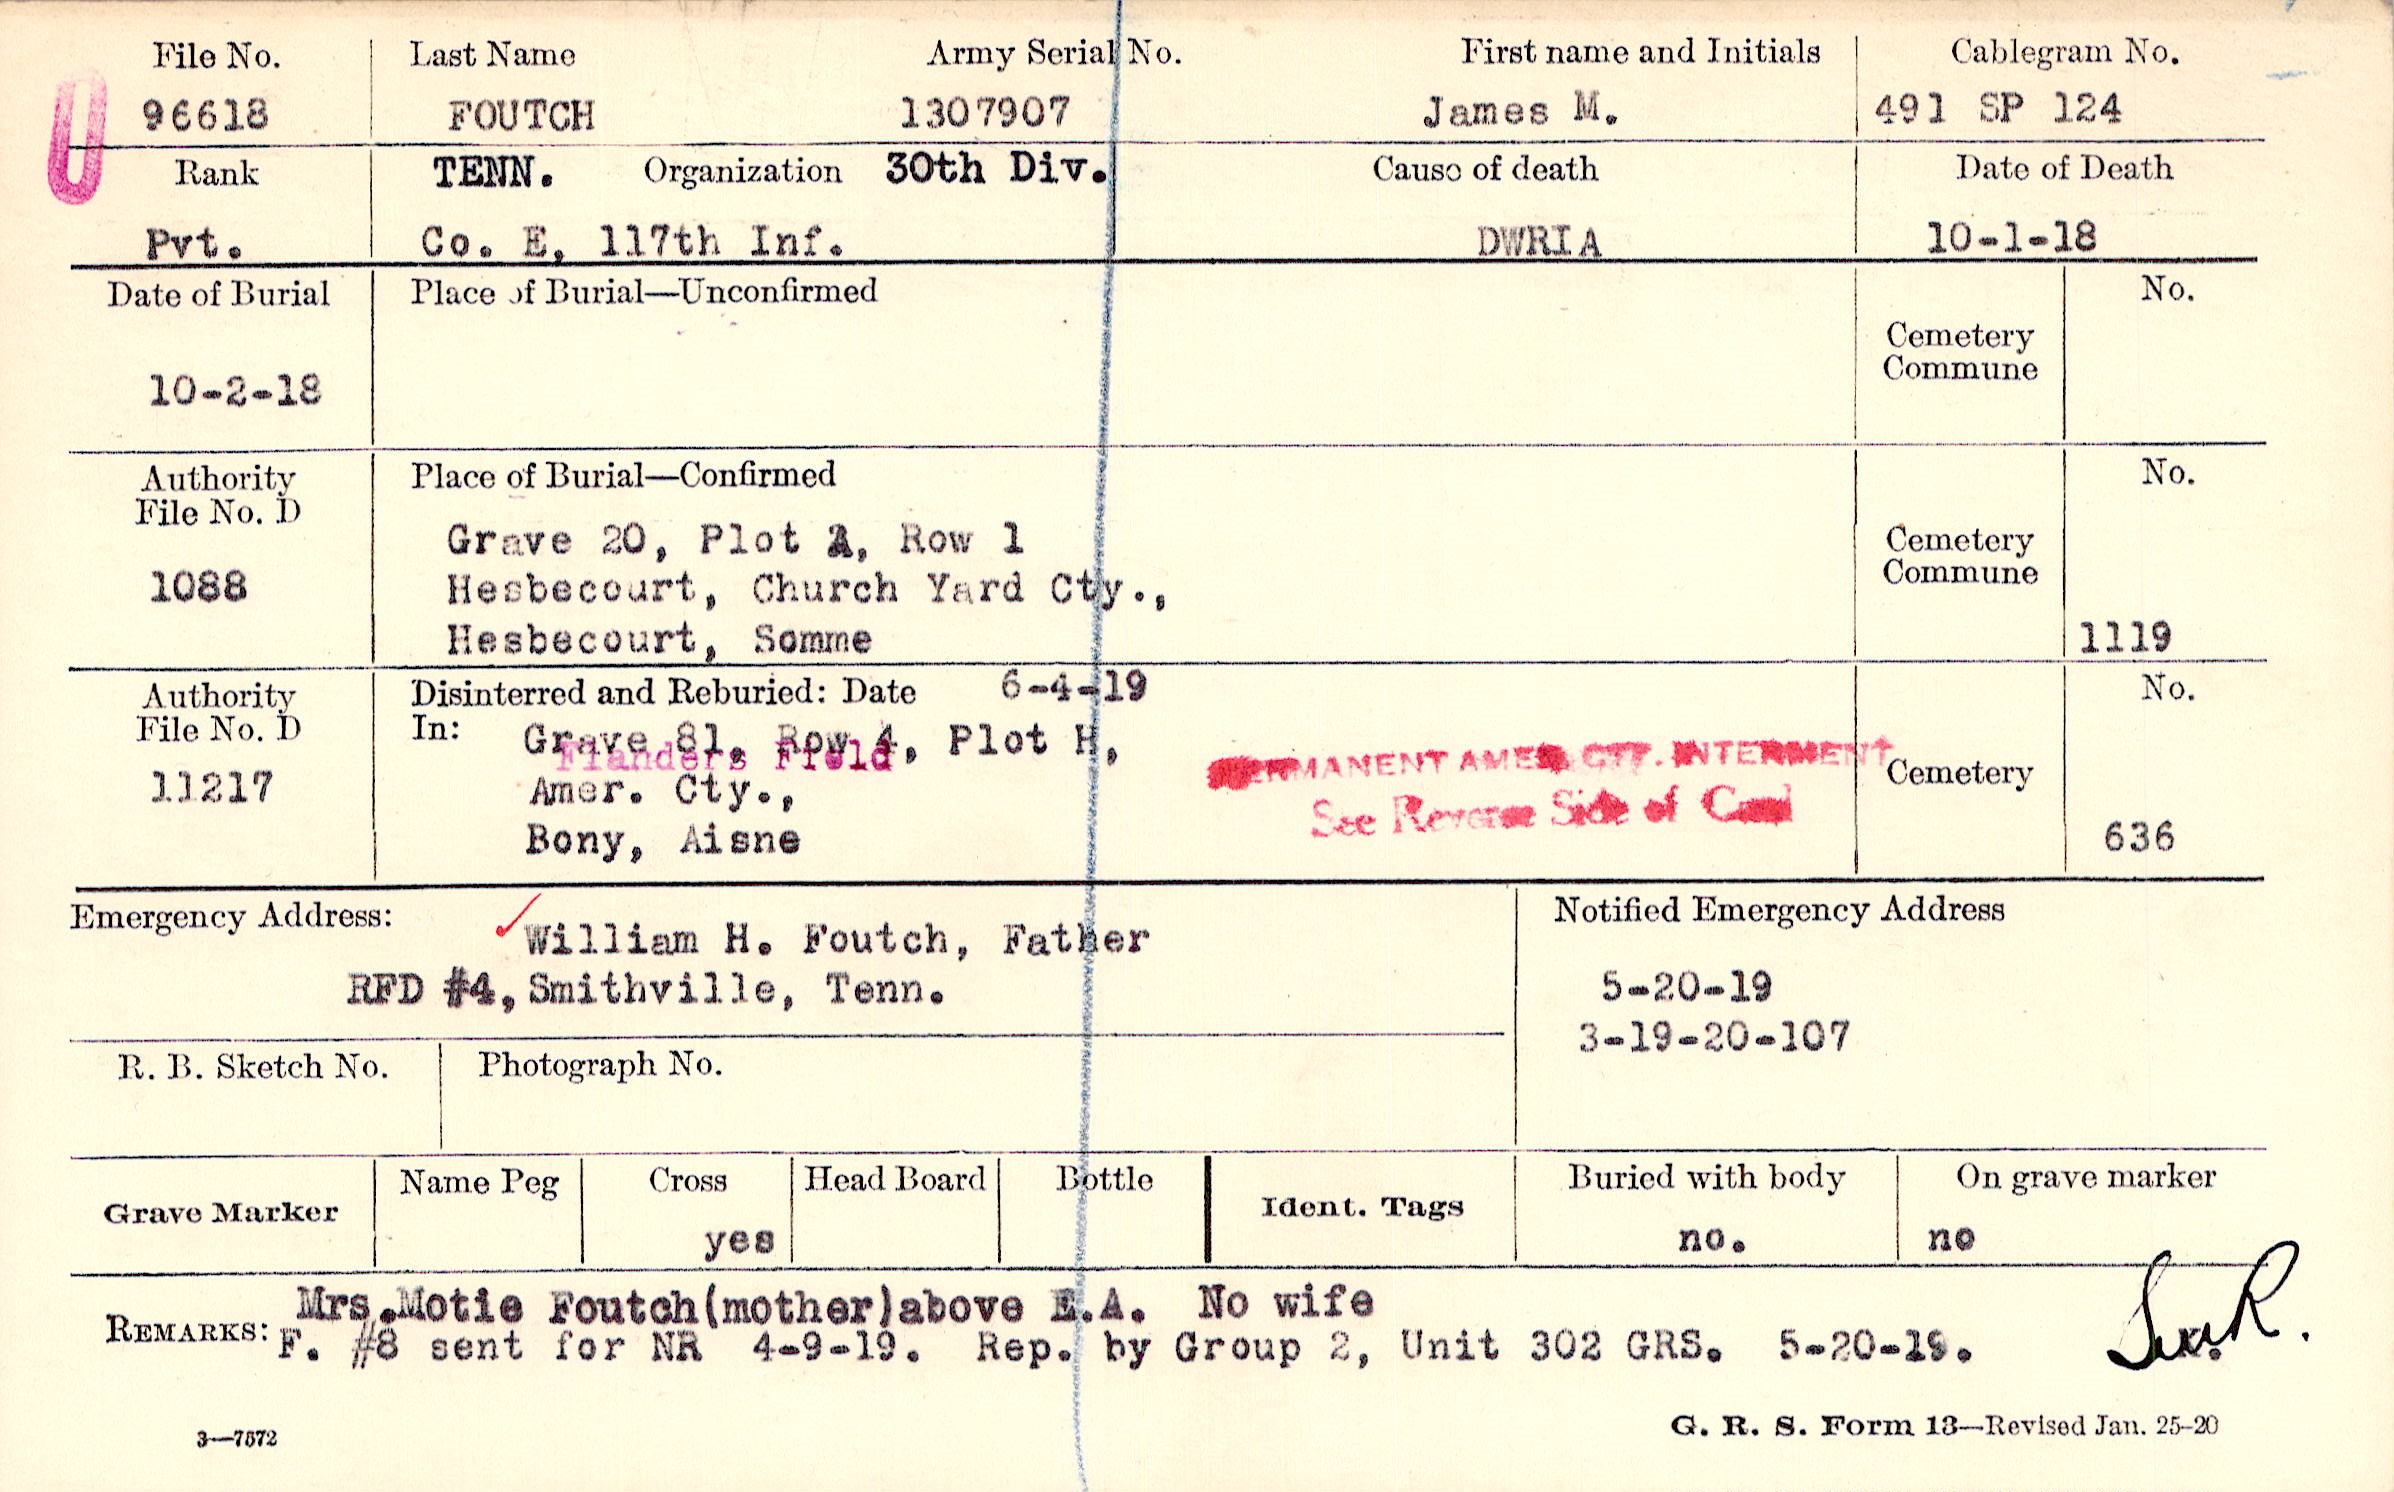 File No. Last Name Army Serial No. First name and Initials Cablegram No.
96618 FOUTCH 1307907 James M. 491 SP 124
Rank TENN. Organization 30th Div. Cause of death Date of Death
Pvt. Co. E, 117th Inf. DWRIA 10-1-18
Date of Burial Place of Burial—Unconfirmed No.
Cemetery
Commune
10-2-18
Authority Place of Burial—Confirmed No.
File No. D
Grave 20, Plot A, Row 1
Cemetery
Commune
1088 Hesbecourt, Church Yard Cty.,
Hesbecourt, Somme 1119
Authority Disinterred and Reburied: Date 6-4-19 No.
File No. D In: Grave 81, Row 4, Plot H,
Flanders Field
PERMANENT AMER. CTY. INTERMENT
11217 Amer. Cty., Cemetery
See Reverse Side of Card
Bony, Aisne 636
Emergency Address: William H. Foutch, Father Notified Emergency Address
RFD #4, Smithville, Tenn. 5-20-19
3-19-20-107
R. B. Sketch No. Photograph No.
Grave Marker Name Peg Cross Head Board Bottle Ident. Tags Buried with body On grave marker
yes no. no
Mrs. Motie Foutch(mother)above E.A. No wife
REMARKS: F. #8 sent for NR 4-9-19. Rep. by Group 2, Unit 302 GRS. 5-20-19.
3—7572 G. R. S. Form 13—Revised Jan. 25-20